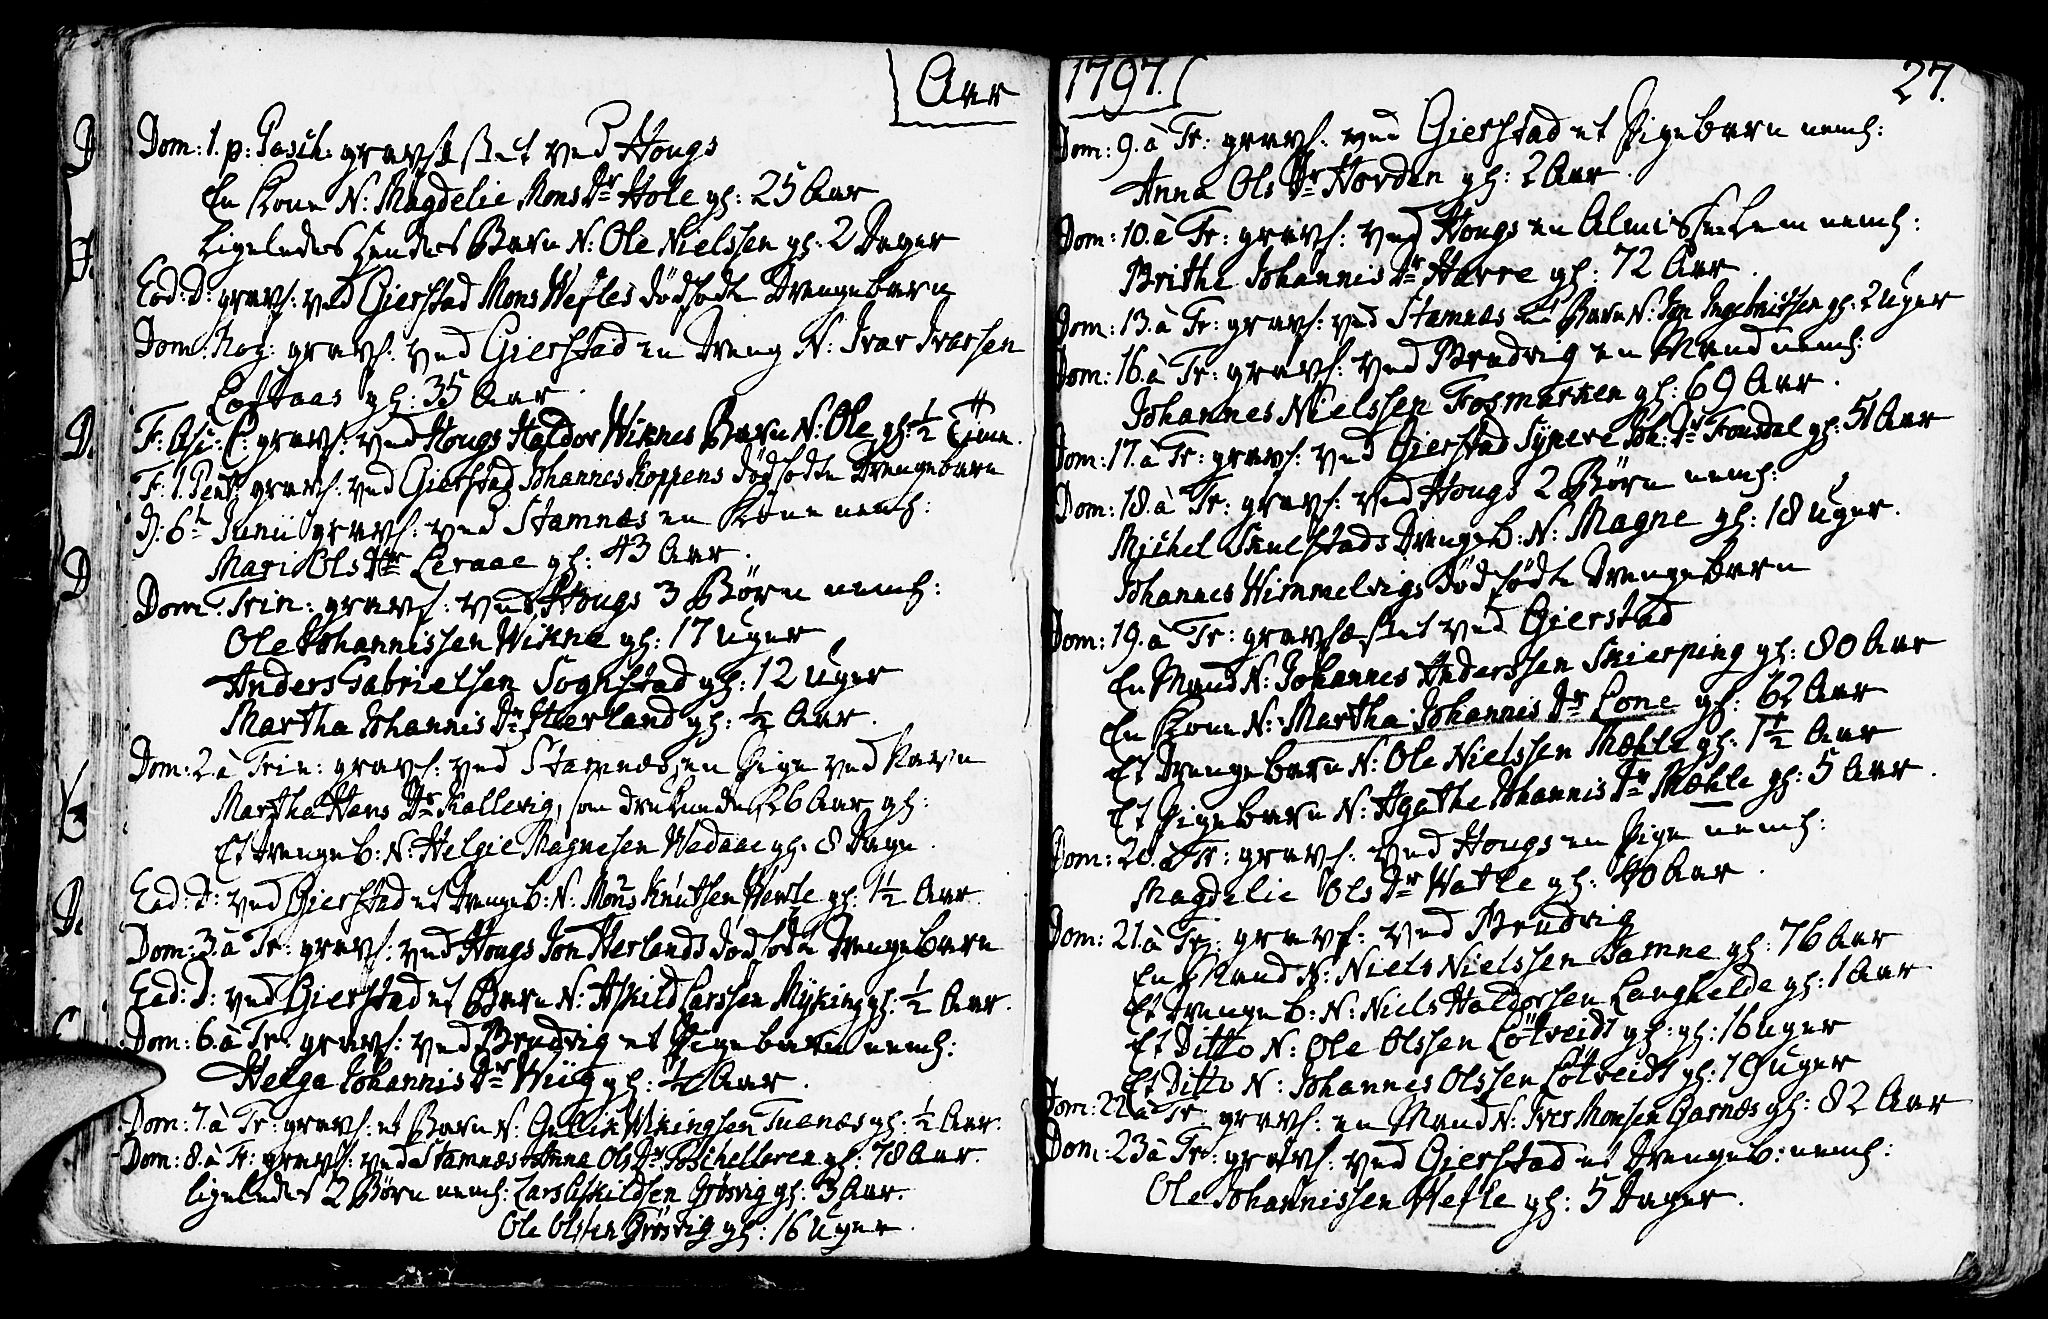 Aar
Dom: 1. p: Pasch: gravsættet ved Hougs
En Kone N: Magdelie Mons Dr Hole gl: 25 Aar
Ligeledes hendes Barn N: Ole Nielssen gl: 2 Dager
Eod: D: gravs: ved Gierstad Mons Wefles dødfødte Drengebarn
Dom: Rog: gravs: ved Gierstad en Dreng N: Ivar Ivarsen
Loftaas gl: 35 Aar.
F: Asc: C: gravs: ved Hougs Haldor Wiknes Barn N: Ole gl: ½ Time.
F: 1. Pent: gravs: ved Gierstad Johannes Koppens dødfødte Drengebarn
D: 6te Junii gravs: ved Stamnæs en Kone neml:
Mari Ols Dtr Leraae gl: 43 Aar.
Dom: Trin: gravs: ved Hougs 3 Børn neml:
Ole Johannissen Wikne gl: 17 Uger
Anders Gabrielsen Sognstad gl: 12 Uger
Martha Johannis Dr Herland gl: ½ Aar.
Dom: 2. à Trin: gravs: ved Stamnæs en Pige ved Navn
Martha Hans Dr Kallevig, som druknede, 26 Aar gl:
Et Drengeb: N: Helgie Magnesen Wedaae gl: 8 Dage.
Eod: D: ved Gierstad et Drengeb: N: Mons Knutsen gl: 1½ Aar.
Dom: 3. à Tr: gravs: ved Hougs Jon Herlands dødfødte Drengebarn
Eod: D: ved Gierstad et Barn N: Askild Larssen Myking gl: ½ Aar.
Dom: 6. à Tr: gravs: ved Brudvig et Pigebarn neml:
Helga Johannis Dr Wiiig gl: ½ Aar.
Dom: 7. à Tr: gravs: et Barn N: Gulik Wikingsen Tuenæs gl: ½ Aar.
Dom: 8. à Tr: gravs: ved Stamnæs Anna Ols Dr Toschelleren gl: 78 Aar.
ligeledes 2 Børn neml: Lars Askildsen Grøsvig gl: 3 Aar.
Ole Olssen Grøsvig gl: 16 Uger.
1797.
27.
Dom: 9. à Tr: gravs: ved Gierstad et Pigebarn neml:
Anna Ols Dr Horden gl: 2 Aar.
Dom: 10. à Tr: gravs: ved Hougs en Almisselem neml:
Brithe Johannis Dr Harre gl: 72 Aar.
Dom: 13. à Tr: gravs: ved Stamnæs et Barn N: Jon Ingebrictsen gl: 2 Uger
Dom: 16. à Tr: gravs: ved Brudvig en Mand neml:
Johannes Nielssen Fosmarken gl: 69 Aar.
Dom: 17. à Tr: gravs: ved Gierstad Synere Joh: Dr Fonsdal gl: 51 Aar
Dom: 18. à Tr: gravs: ved Hougs 2 Børn neml:
Michel Skulstads Drengeb: N: Magne gl: 18 Uger.
Johannes Himmelvigs dødfødte Drengebarn
Dom: 19. à Tr: gravsættet ved Gierstad
En Mand N: Johannes Anderssen Skierping gl: 80 Aar
En Kone N: Martha Johannis Dr Lone gl: 62 Aar
Et Drengebarn N: Ole Nielssen Mæhle gl: 1½ Aar
Et Pigebarn N: Agathe Johannis Dr Mæhle gl: 5 Aar.
Dom: 20. à Tr: gravs: ved Hougs en Pige neml:
Magdelie Ols Dr Watle gl: 40 Aar.
Dom: 21. à Tr: gravs: ved Brudvig
En Mand N: Niels Nielssen Tamne gl: 76 Aar
Et Drengeb: N: Niels Haldorsen Langhelde gl: 1 Aar
Et Ditto N: Ole Olssen Løtveidt gl: gl: 16 Uger
Et Ditto N: Johannes Olssen Løtveidt gl: Uger
Dom: 22 à Tr: gravs: en Mand N: Iver Monsen Garnæs gl: 82 Aar
Dom: 23 à Tr: gravs: ved Gierstad et Drengeb: neml:
Ole Johannissen Hefle gl: 5 Dager.